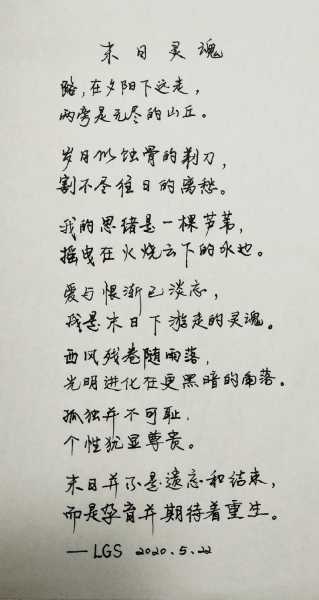 末日灵魂
路,在夕阳下远走,
两旁是无尽的山丘。
岁月似蚀骨的剃刀,
割不尽往日的离愁。
我的思绪是一棵芦苇,
摇曳在火烧云下的水池。
爱与恨渐已淡忘,
我是末日下游走的灵魂。
西风残卷随雨落,
光明进化在更黑暗的角落。
孤独并不可耻,
个性犹显尊贵。
末日并不是遗忘和结束,
而是孕育并期待着重生。
—LGS 2020.5.22